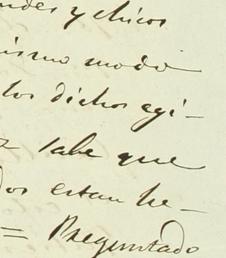 ndes y chicos
ismo modo
los dichos egi-
sabe que
dos estan he-
= Preguntado